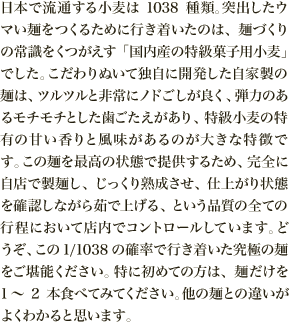 日本で流通する小麦は 1038 種類。突出したウ
マい麺をつくるために行き着いたのは、麺づくり
の常識をくつがえす「国内産の特級菓子用小麦」
でした。こだわりぬいて独自に開発した自家製の
麺は、ツルツルと非常にノドごしが良く、弾力のあ
るモチモチとした歯ごたえがあり、特級小麦の特
有の甘い香りと風味があるのが大きな特徴で
す。この麺を最高の状態で提供するため、完全に
自店で製麺し、じっくり熟成させ、仕上がり状態
を確認しながら茹で上げる、という品質の全ての
行程において店内でコントロールしています。ど
うぞ、この 1/1038 の確率で行き着いた究極の麺
をご堪能ください。特に初めての方は、麺だけを
1～ 2 本食べてみてください。他の麺との違いが
よくわかると思います。